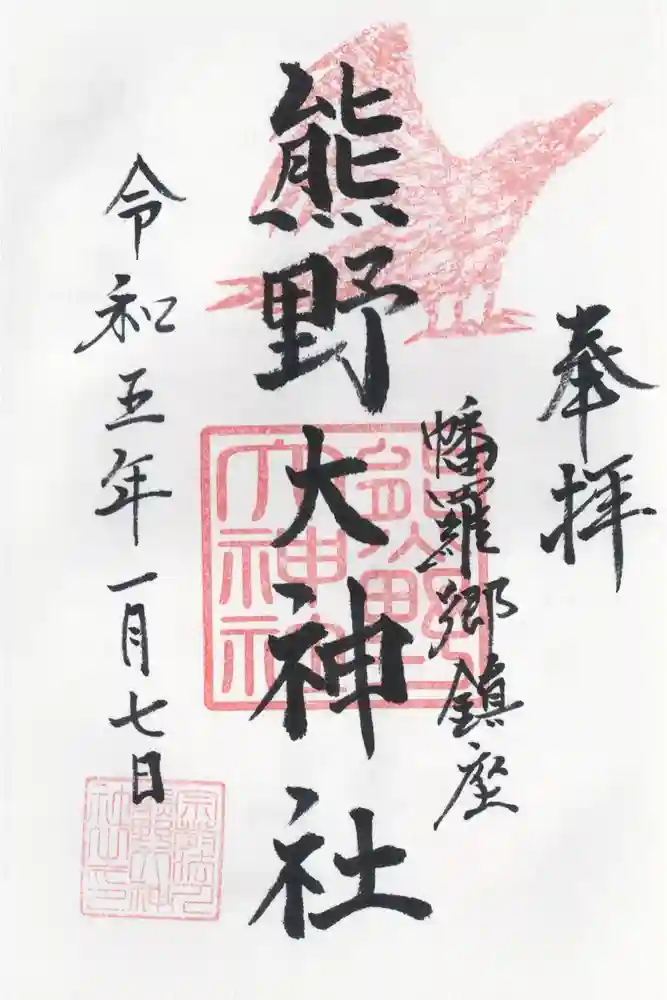 奉拝
幡羅郷鎮座
熊野大神社
令和五年一月七日
熊野
大神社